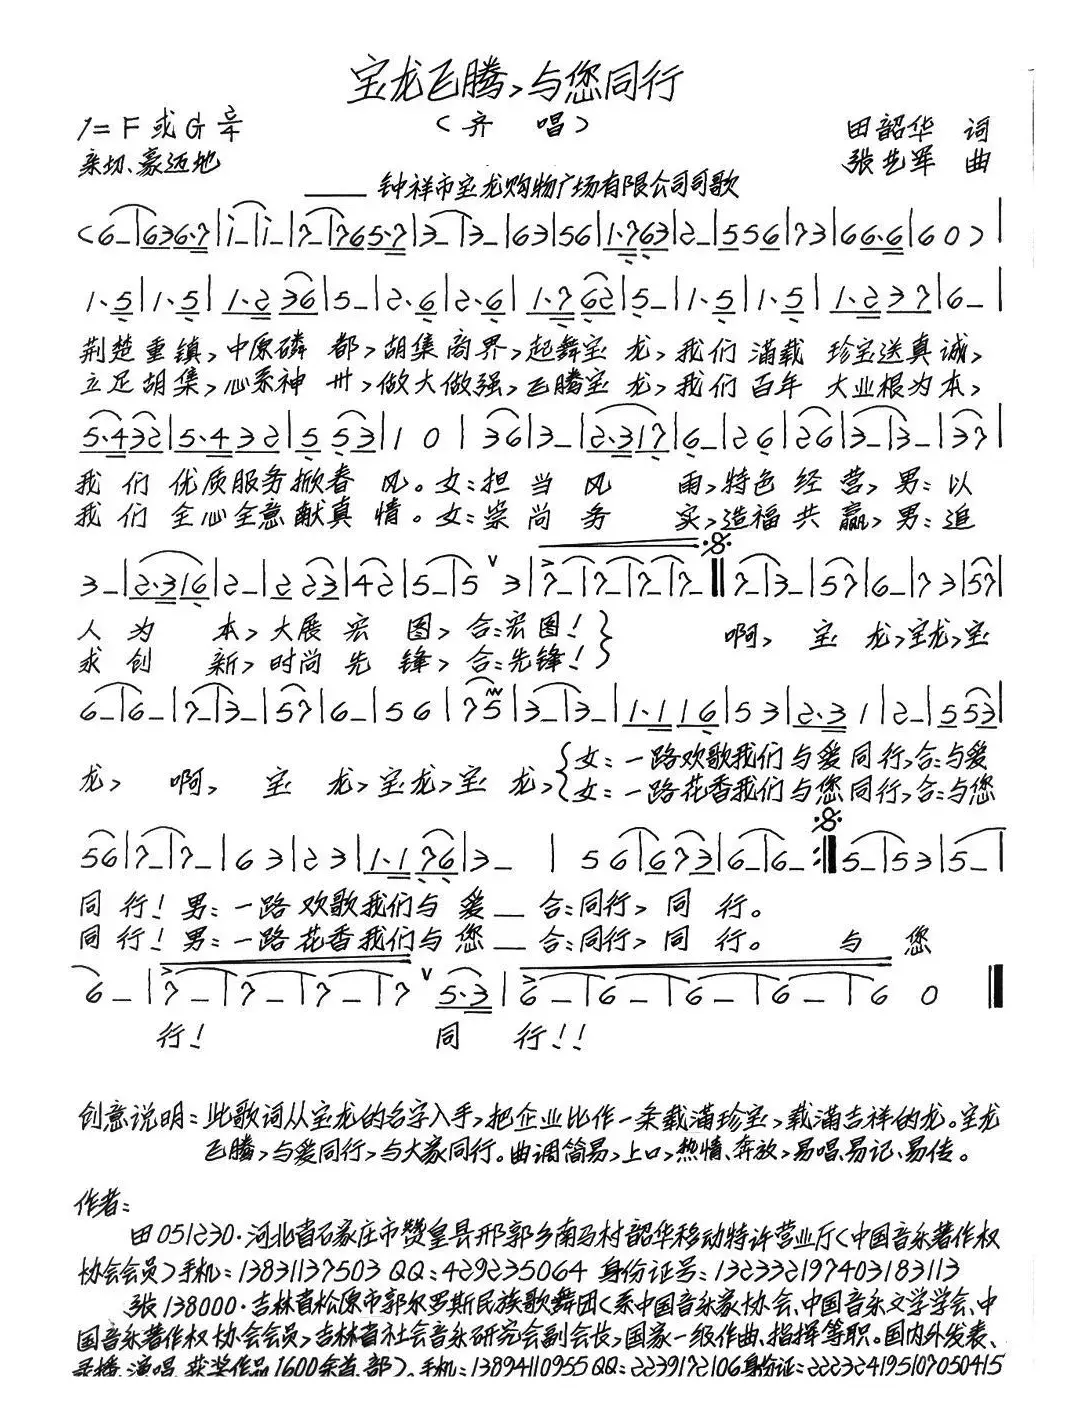 宝龙飞腾,与您同行
(齐 唱)
1=F或G 2/4
田韶华 词
亲切、豪迈地
张艺军 曲
——钟祥市宝龙购物广场有限公司司歌
荆楚重镇,中原磷都,胡集商界,起舞宝龙,我们满载珍宝送真诚,
立足胡集,心系神州,做大做强,飞腾宝龙,我们百年大业根为本,
我们优质服务掀春风。女:担当风雨,特色经营,男:以
我们全心全意献真情。女:崇尚务实,造福共赢,男:追
人为本,大展宏图,合:宏图! 啊,宝龙,宝龙,宝
求创新,时尚先锋,合:先锋!
龙,啊,宝龙,宝龙,宝龙,
女:一路欢歌我们与爱同行,合:与爱
女:一路花香我们与您同行,合:与您
同行!男:一路欢歌我们与爱——合:同行,同行。
同行!男:一路花香我们与您——合:同行,同行。 与您
行! 同行!!
创意说明:此歌词从宝龙的名字入手,把企业比作一条载满珍宝,载满吉祥的龙。宝龙
飞腾,与爱同行,与大家同行。曲调简易,上口,热情、奔放,易唱、易记、易传。
作者:
田051230·河北省石家庄市赞皇县邢郭乡南马村韶华移动特许营业厅(中国音乐著作权
协会会员)手机:13831137503 QQ:429235064 身份证号:132332197403183113
张138000·吉林省松原市郭尔罗斯民族歌舞团(系中国音乐家协会、中国音乐文学学会、中
国音乐著作权协会会员,吉林省社会音乐研究会副会长,国家一级作曲、指挥等职。国内外发表、
录播、演唱、获奖作品1600余首、部)。手机:13894110955 QQ:2239172106 身份证:222324195107050415